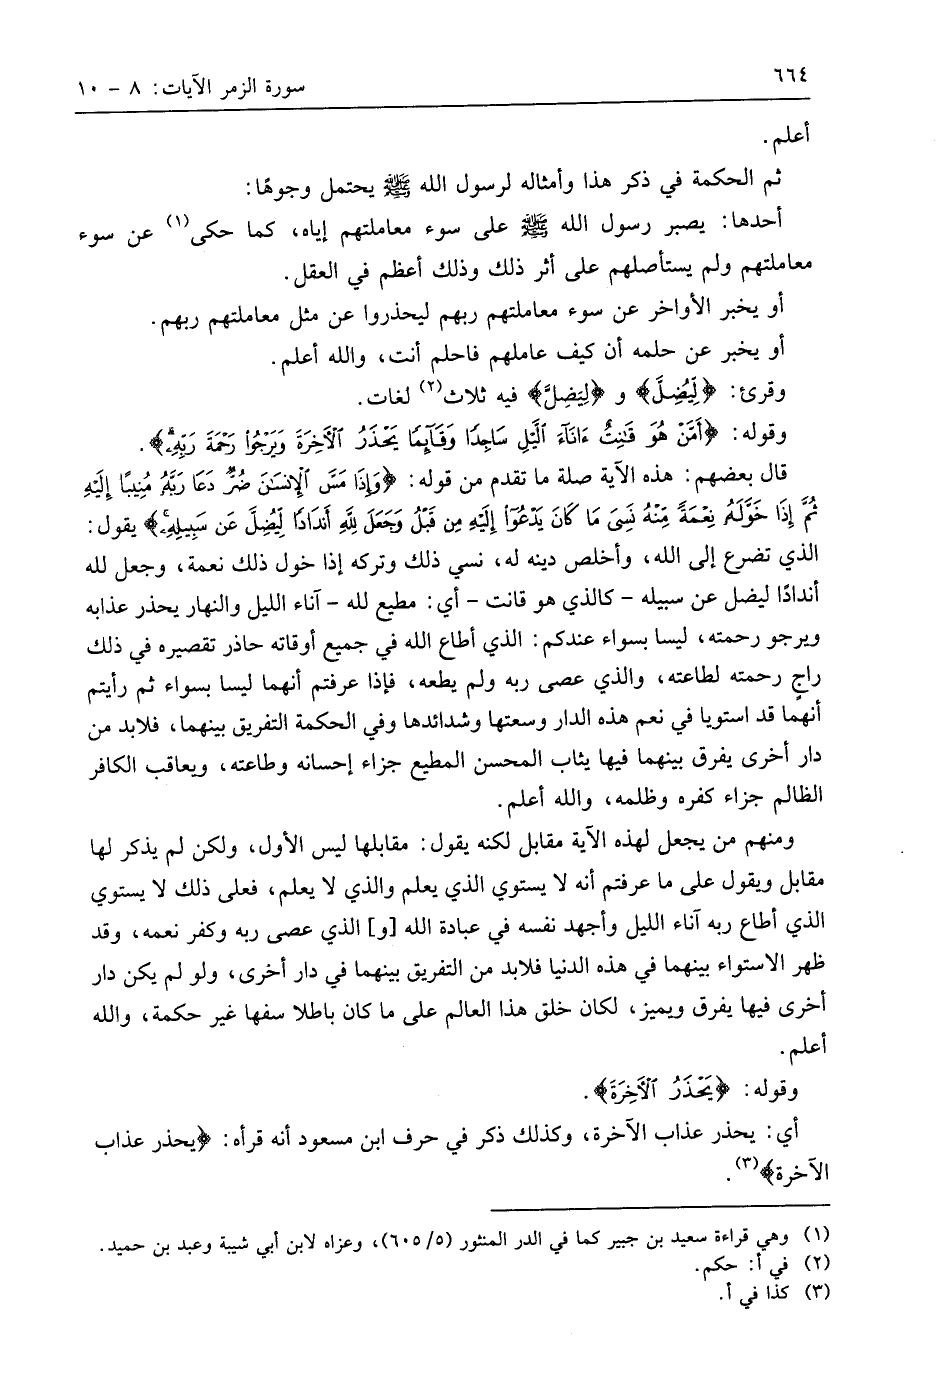 ٦٦٤
سورة الزمر الآيات: ٨ - ١٠
أعلم.
ثم الحكمة في ذكر هذا وأمثاله لرسول الله ﷺ يحتمل وجوهًا:
أحدها: يصبر رسول الله ﷺ على سوء معاملتهم إياه، كما حكى(١) عن سوء
معاملتهم ولم يستأصلهم على أثر ذلك وذلك أعظم في العقل.
أو يخبر الأواخر عن سوء معاملتهم ربهم ليحذروا عن مثل معاملتهم ربهم.
أو يخبر عن حلمه أن كيف عاملهم فاحلم أنت، والله أعلم.
وقرئ: ﴿لِّيُضِلَّ﴾ و ﴿لِيَضِلَّ﴾ فيه ثلاث(٢) لغات.
وقوله: ﴿أَمَّنْ هُوَ قَٰنِتٌ ءَانَآءَ ٱلَّيْلِ سَاجِدًا وَقَآئِمًا يَحْذَرُ ٱلْءَاخِرَةَ وَيَرْجُوا۟ رَحْمَةَ رَبِّهِۦ﴾.
قال بعضهم: هذه الآية صلة ما تقدم من قوله: ﴿وَإِذَا مَسَّ ٱلْإِنسَٰنَ ضُرٌّ دَعَا رَبَّهُۥ مُنِيبًا إِلَيْهِ
ثُمَّ إِذَا خَوَّلَهُۥ نِعْمَةً مِّنْهُ نَسِىَ مَا كَانَ يَدْعُوٓا۟ إِلَيْهِ مِن قَبْلُ وَجَعَلَ لِلَّهِ أَندَادًا لِّيُضِلَّ عَن سَبِيلِهِۦ﴾ يقول:
الذي تضرع إلى الله، وأخلص دينه له، نسي ذلك وتركه إذا خول ذلك نعمة، وجعل لله
أندادًا ليضل عن سبيله - كالذي هو قانت - أي: مطيع لله - آناء الليل والنهار يحذر عذابه
ويرجو رحمته، ليسا بسواء عندكم: الذي أطاع الله في جميع أوقاته حاذر تقصيره في ذلك
راجٍ رحمته لطاعته، والذي عصى ربه ولم يطعه، فإذا عرفتم أنهما ليسا بسواء ثم رأيتم
أنهما قد استويا في نعم هذه الدار وسعتها وشدائدها وفي الحكمة التفريق بينهما، فلابد من
دار أخرى يفرق بينهما فيها يثاب المحسن المطيع جزاء إحسانه وطاعته، ويعاقب الكافر
الظالم جزاء كفره وظلمه، والله أعلم.
ومنهم من يجعل لهذه الآية مقابل لكنه يقول: مقابلها ليس الأول، ولكن لم يذكر لها
مقابل ويقول على ما عرفتم أنه لا يستوي الذي يعلم والذي لا يعلم، فعلى ذلك لا يستوي
الذي أطاع ربه آناء الليل وأجهد نفسه في عبادة الله [و] الذي عصى ربه وكفر نعمه، وقد
ظهر الاستواء بينهما في هذه الدنيا فلابد من التفريق بينهما في دار أخرى، ولو لم يكن دار
أخرى فيها يفرق ويميز، لكان خلق هذا العالم على ما كان باطلا سفها غير حكمة، والله
أعلم.
وقوله: ﴿يَحْذَرُ ٱلْءَاخِرَةَ﴾.
أي: يحذر عذاب الآخرة، وكذلك ذكر في حرف ابن مسعود أنه قرأه: ﴿يحذر عذاب
الآخرة﴾(٣).
(١) وهي قراءة سعيد بن جبير كما في الدر المنثور (٥/ ٦٠٥)، وعزاه لابن أبي شيبة وعبد بن حميد.
(٢) في أ: حكم.
(٣) كذا في أ.